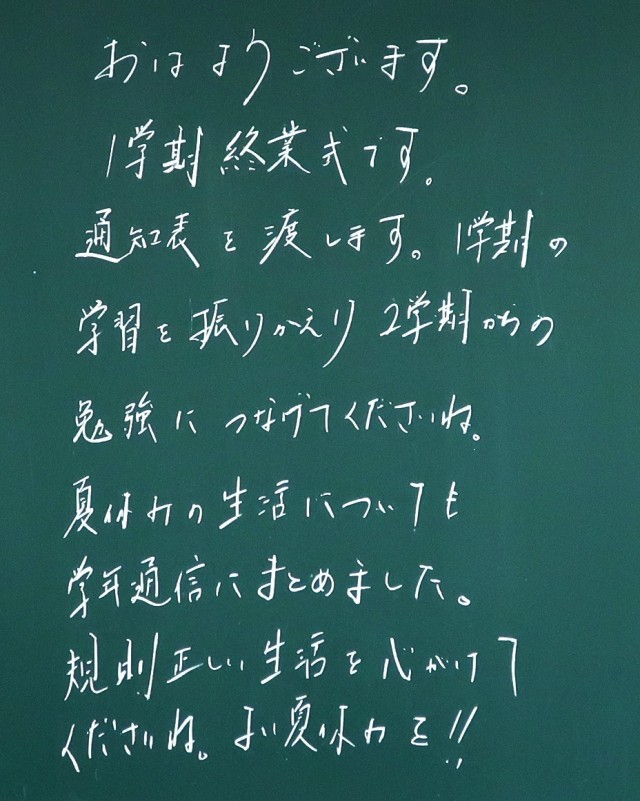 おはようございます。
1学期終業式です。
通知表を渡します。1学期の
学習を振りかえり2学期からの
勉強につなげてくださいね。
夏休みの生活についても
学年通信にまとめました。
規則正しい生活を心がけて
くださいね。よい夏休みを!!